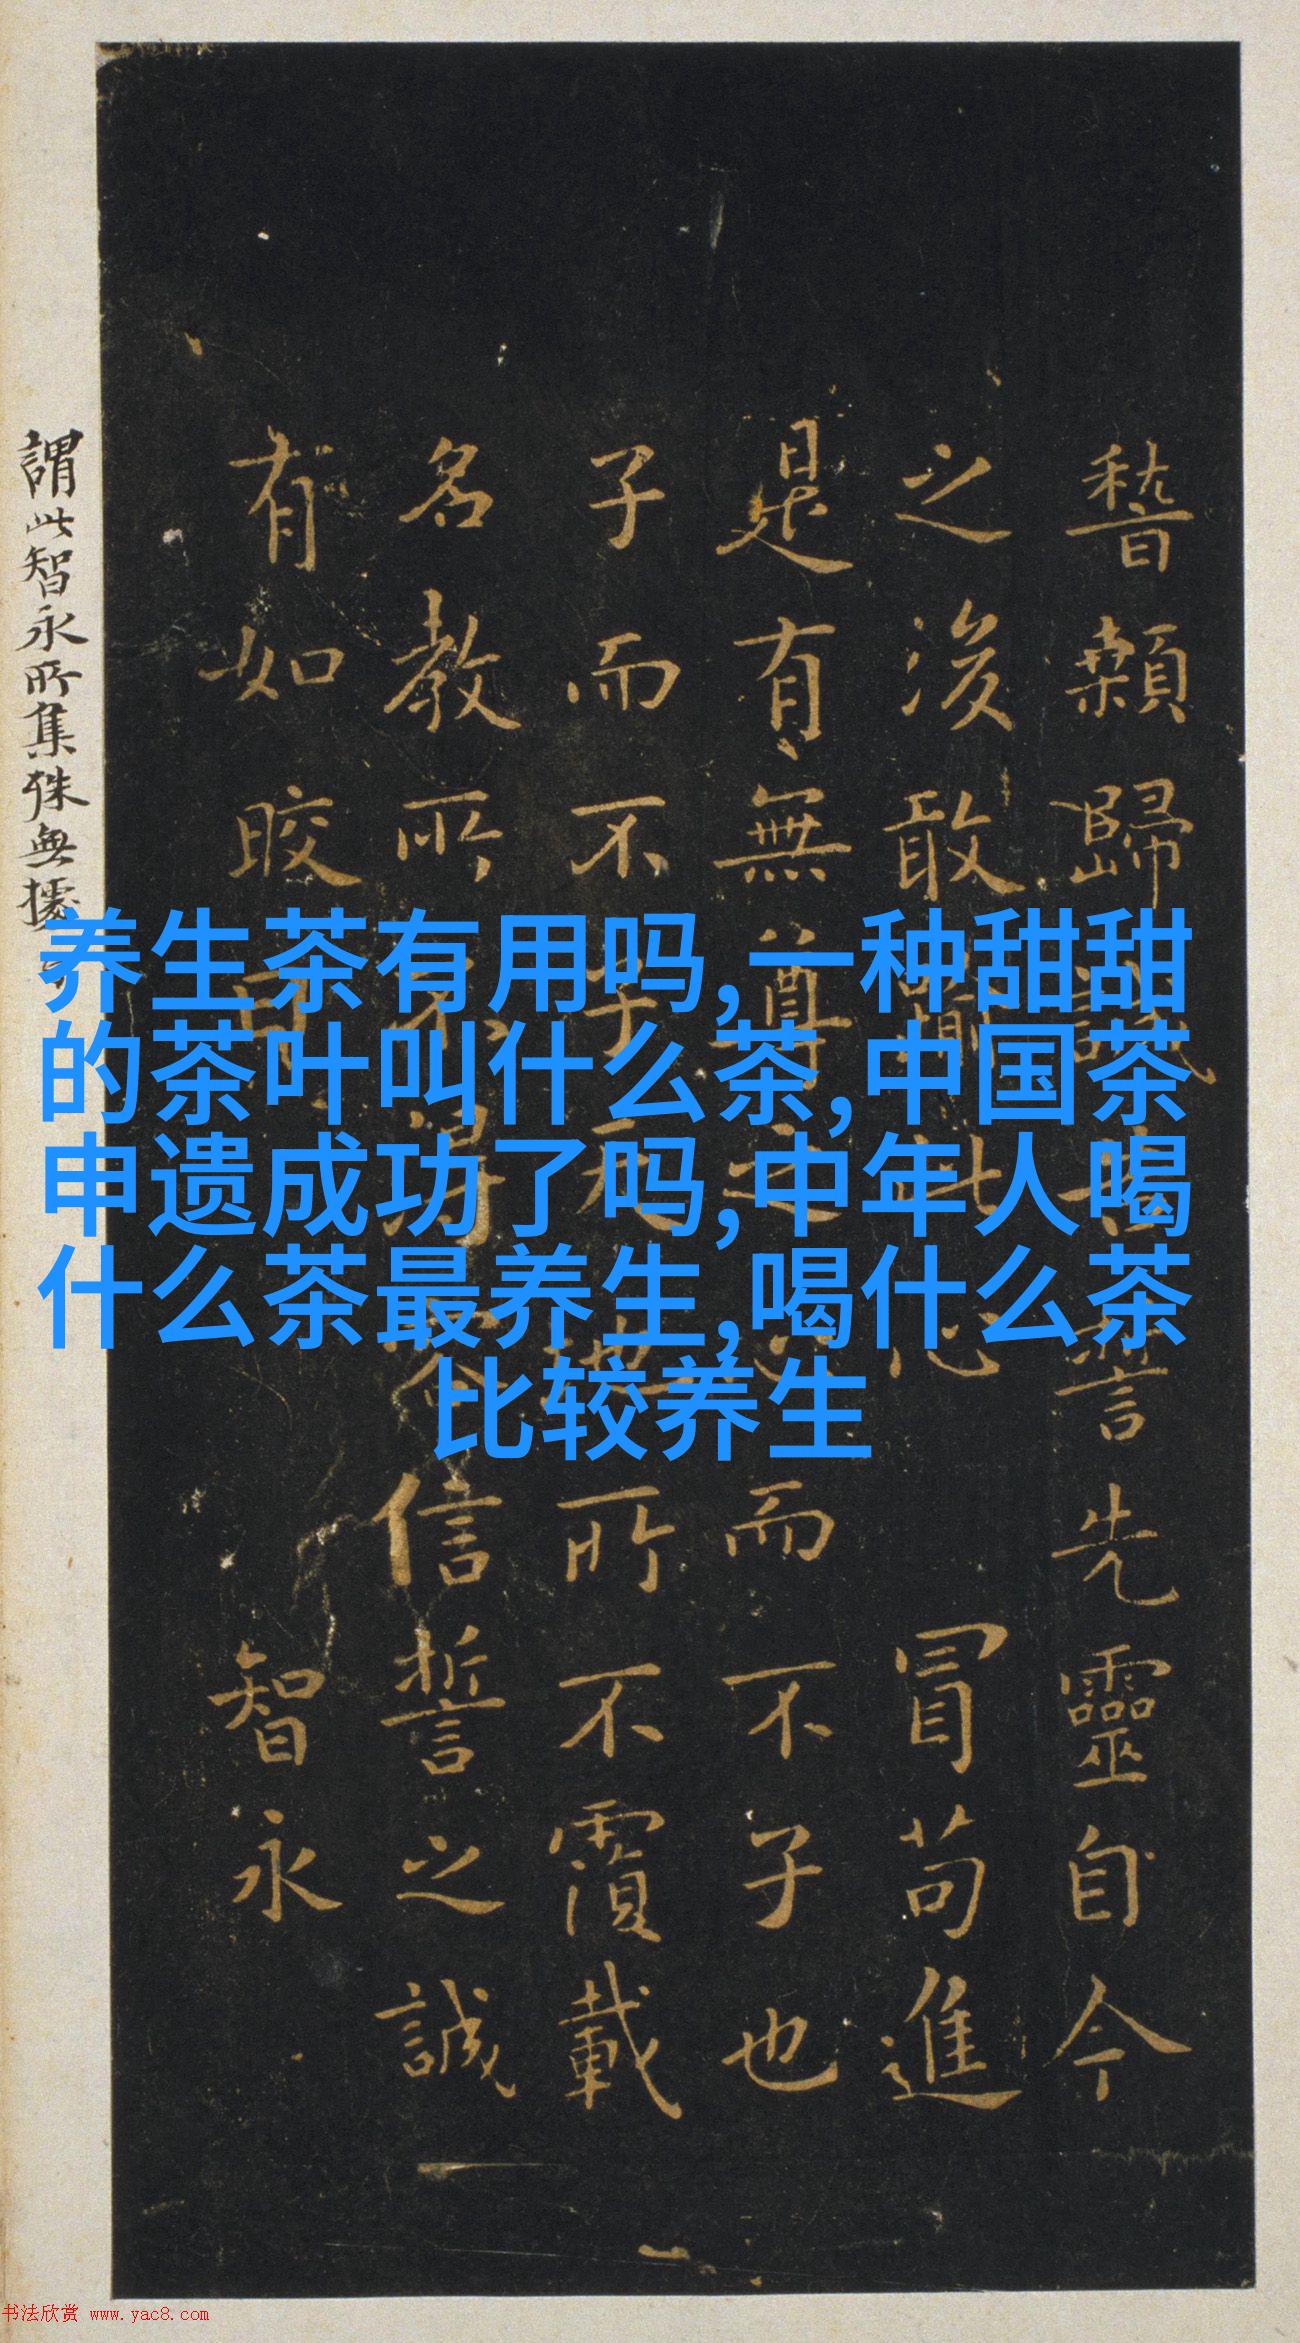 稽顙歸誠告誓先靈自今
之後敢渝此心 冒苟進
是有無尊之心而不子也
子而不子天地所不覆載
名教所不得容信誓之誠
有如皎日 智永
謂此智永所集殊無據
养生茶有用吗,一种甜甜
的茶叶叫什么茶,中国茶
申遗成功了吗,中年人喝
什么茶最养生,喝什么茶
比较养生
书法欣赏 www.yac8.com